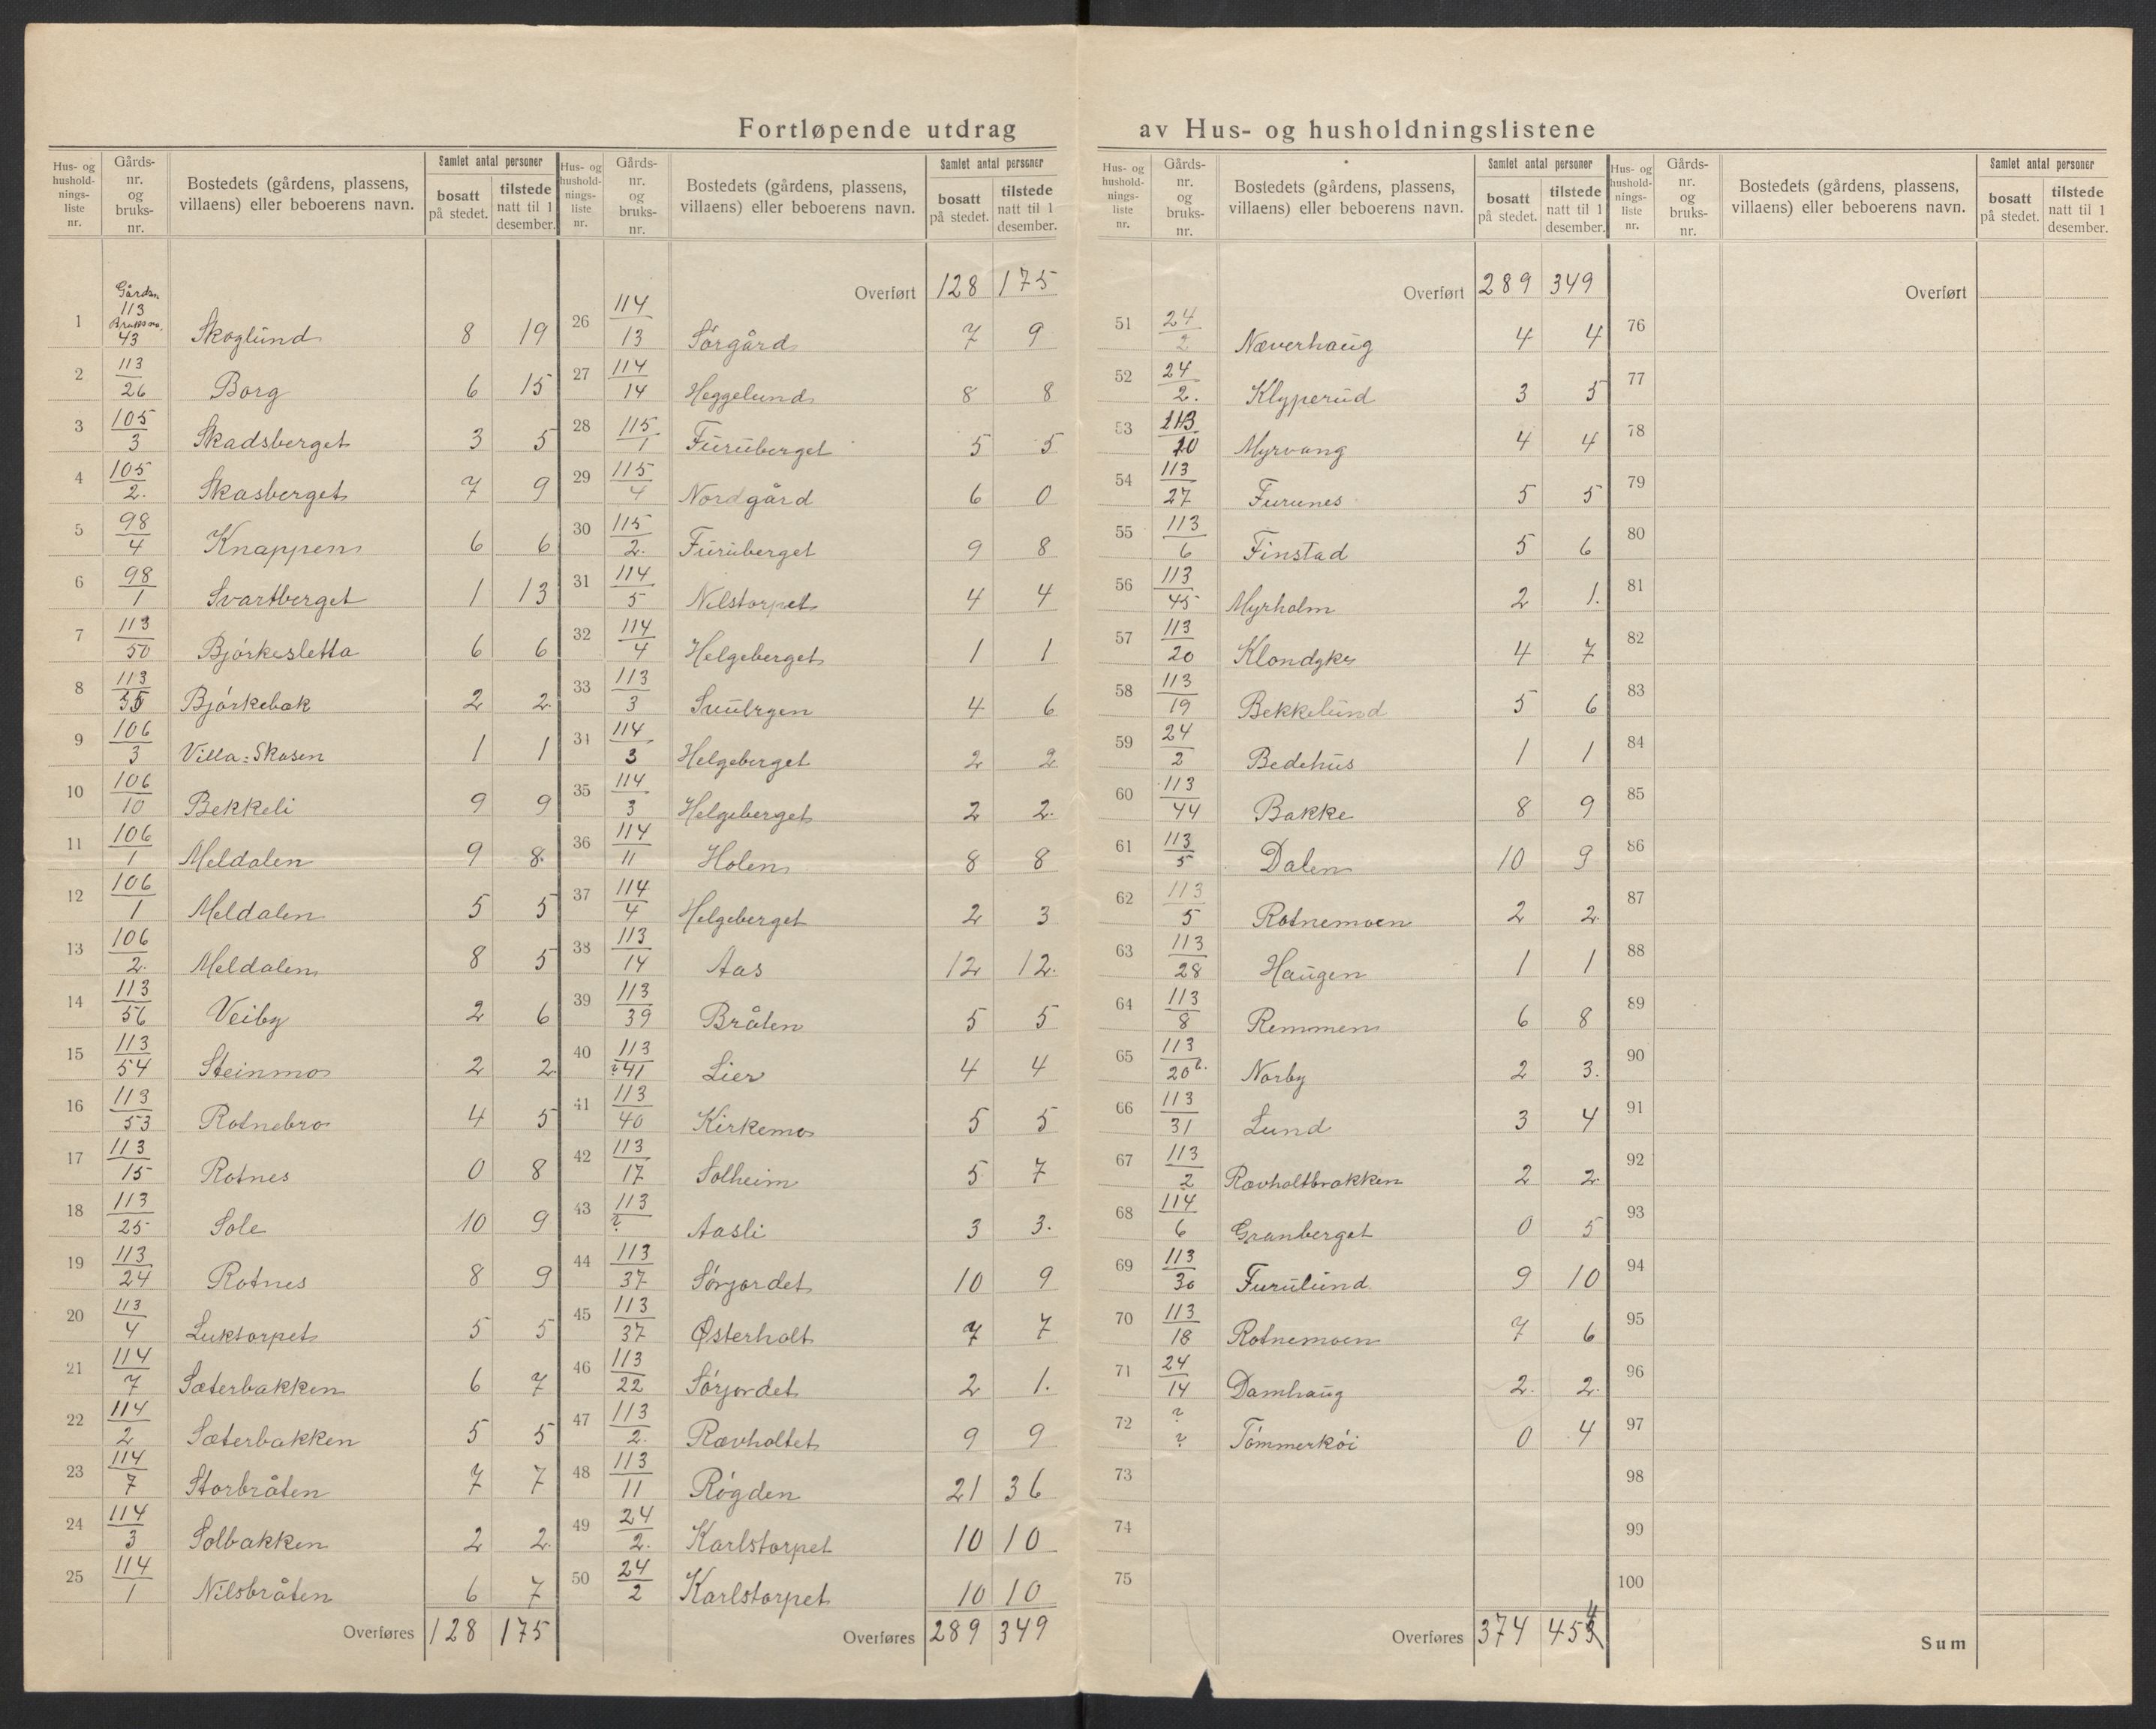 Fortløpende utdrag av Hus- og husholdningslistene
Hus- og husholdnings-liste nr. | Gårds-nr. og bruks-nr. | Bostedets (gårdens, plassens, villaens) eller beboerens navn. | Samlet antal personer | bosatt på stedet. | tilstede natt til 1 desember.
1 Gårdsn. 113 Bruksno. 43 Skoglund 8 19
2 113/26 Borg 6 15
3 105/3 Skadsberget 3 5
4 105/2. Skasberget 7 9
5 98/4 Knappen 6 6
6 98/1 Svartberget 1 13
7 113/50 Bjórkesletta 6 6
8 113/ Bjórkebak 2 2
9 106/3 Villa: Skasen 1 1
10 106/10 Bekkeli 9 9
11 106/1 Meldalen 9 8
12 106/1 Meldalen 5 5
13 106/2. Meldalen 8 5
14 113/56 Veiby 2 6
15 113/54 Steinmo 2 2
16 113/53 Rotnebro 4 5
17 113/15 Rotnes 0 8
18 113/25 Sole 10 9
19 113/24 Rotnes 8 9
20 113/4 Luktorpet 5 5
21 114/7 Sæterbakken 6 7
22 114/2 Sæterbakken 5 5
23 114/7 Storbråten 7 7
24 114/3 Solbakken 2 2
25 114/1 Nilsbråten 6 7
Overføres 128 175
Hus- og husholdnings-liste nr. | Gårds-nr. og bruks-nr. | Bostedets (gårdens, plassens, villaens) eller beboerens navn. | Samlet antal personer | bosatt på stedet. | tilstede natt til 1 desember.
Overført 128 175
26 114/13 Sórgård 7 9
27 114/14 Heggelund 8 8
28 115/1 Furuberget 5 5
29 115/4 Nordgård 6 0
30 115/2. Furuberget 9 8
31 114/5 Nilstorpet 4 4
32 114/4 Helgeberget 1 1
33 113/3 4 6
34 114/3 Helgeberget 2 2
35 114/3 Helgeberget 2 2.
36 114/11 Holen 8 8
37 114/4 Helgeberget 2 3
38 113/14 Aas 12 12.
39 113/39 Bråten 5 5
40 113/?41 Lier 4 4
41 113/40 Kirkemo 5 5
42 113/17 Solheim 5 7
43 113/? Aasli 3 3.
44 113/37 Sórjordet 10 9
45 113/37 Østerholt 7 7
46 113/22 Sórjordet 2 1.
47 113/2. Rævholtet 9 9
48 113/11 Rógden 21 36
49 24/2. Karlstorpet 10 10
50 24/2 Karlstorpet 10 10
Overføres 289 349
Hus- og husholdnings-liste nr. | Gårds-nr. og bruks-nr. | Bostedets (gårdens, plassens, villaens) eller beboerens navn. | Samlet antal personer | bosatt på stedet. | tilstede natt til 1 desember.
Overført 289 349
51 24/2 Næverhaug 4 4
52 24/2. Klyperud 3 5
53 113/20 Myrvang 4 4
54 113/27 Furunes 5 5
55 113/6 Finstad 5 6
56 113/45 Myrholm 2 1.
57 113/20 Klondyke 4 7
58 113/19 Bekkelund 5 6
59 24/2 Bedehus 1 1
60 113/44 Bakke 8 9
61 113/5 Dalen 10 9
62 113/5 Rotnemoen 2 2
63 113/28 Haugen 1 1
64 113/8 Remmen 6 8
65 113/20 Norby 2 3.
66 113/31 Lund 3 4
67 113/2 Rævholtbrakken 2 2
68 114/6 Granberget 0 5
69 113/30 Furulund 9 10
70 113/18 Rotnemoen 7 6
71 24/14 Damhaug 2. 2.
72 ?/? Tómmerkói 0 4
73
74
75
Overføres 374 454
Hus- og husholdnings-liste nr. | Gårds-nr. og bruks-nr. | Bostedets (gårdens, plassens, villaens) eller beboerens navn. | Samlet antal personer | bosatt på stedet. | tilstede natt til 1 desember.
Overført
76
77
78
79
80
81
82
83
84
85
86
87
88
89
90
91
92
93
94
95
96
97
98
99
100
Sum